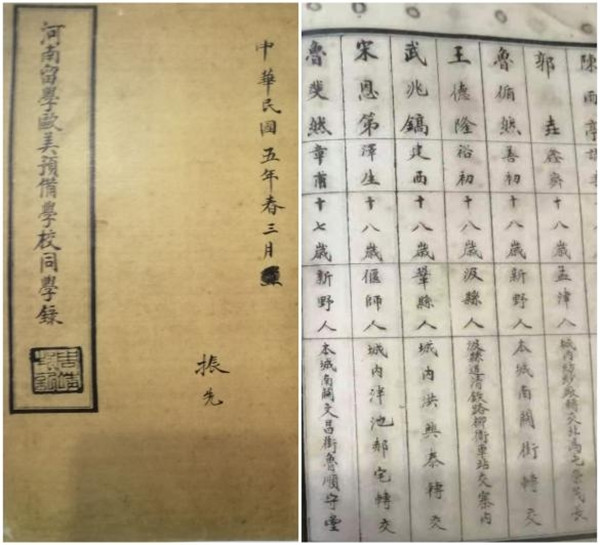 中華民國五年春三月
振先
河南留學歐美預備學校同學錄
陳雨亭
郭垚 十八歲 孟津人
魯循然 善初 十八歲 新野人 本城南關街轉交
王德隆 裕初 十八歲 汲縣人 汲縣道清鐵路柳衛車站交寨內
武兆鎬 建西 十八歲 鞏縣人 城內洪興泰轉交
宋恩第 澤生 十八歲 偃師人 城內泮池郝宅轉交
魯斐然 章甫 十七歲 新野人 本城南關文昌街魯順守堂